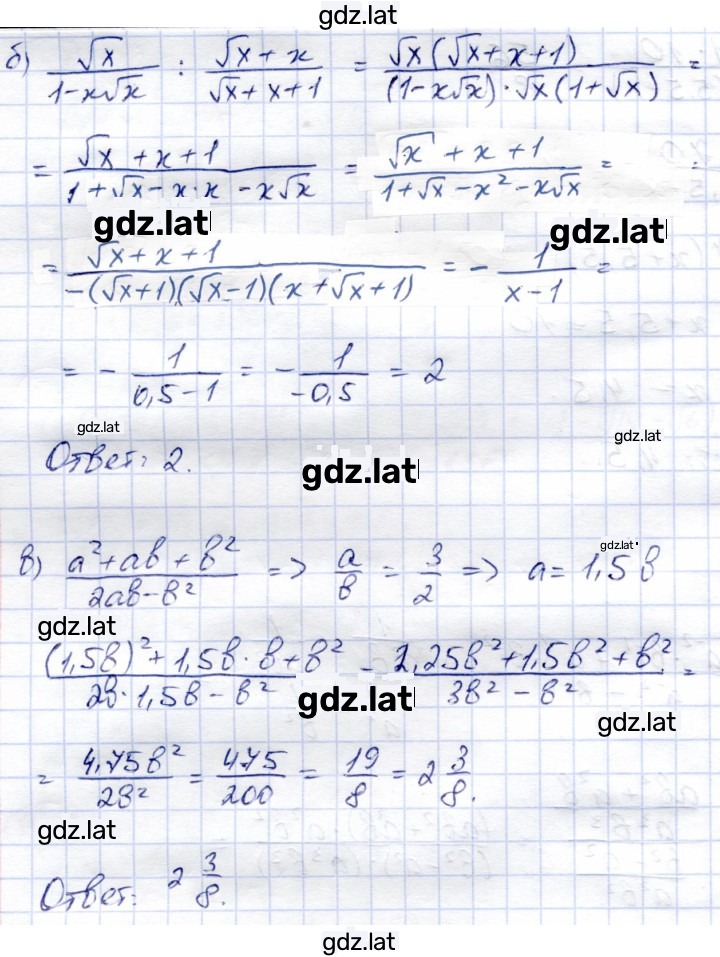 gdz.lat
б) √x / (1-x√x) : (√x + x) / (√x + x + 1) = √x (√x + x + 1) / ((1-x√x)·√x (1+√x)) =
= (√x + x + 1) / (1 + √x - x·x - x√x) = (√x + x + 1) / (1 + √x - x² - x√x) =
gdz.lat gdz.lat
= (√x + x + 1) / (-(√x+1)(√x-1)(x + √x + 1)) = - 1 / (x - 1) =
= - 1 / (0,5 - 1) = - 1 / (-0,5) = 2
gdz.lat gdz.lat
Ответ: 2. gdz.lat
gdz.lat
в) (a² + ab + b²) / (2ab - b²) => a/b = 3/2 => a = 1,5b
gdz.lat
((1,5b)² + 1,5b·b + b²) / (2b·1,5b - b²) = (2,25b² + 1,5b² + b²) / (3b² - b²) =
gdz.lat gdz.lat
= 4,75b² / 2b² = 475 / 200 = 19 / 8 = 2 3/8.
gdz.lat
Ответ: 2 3/8.
gdz.lat